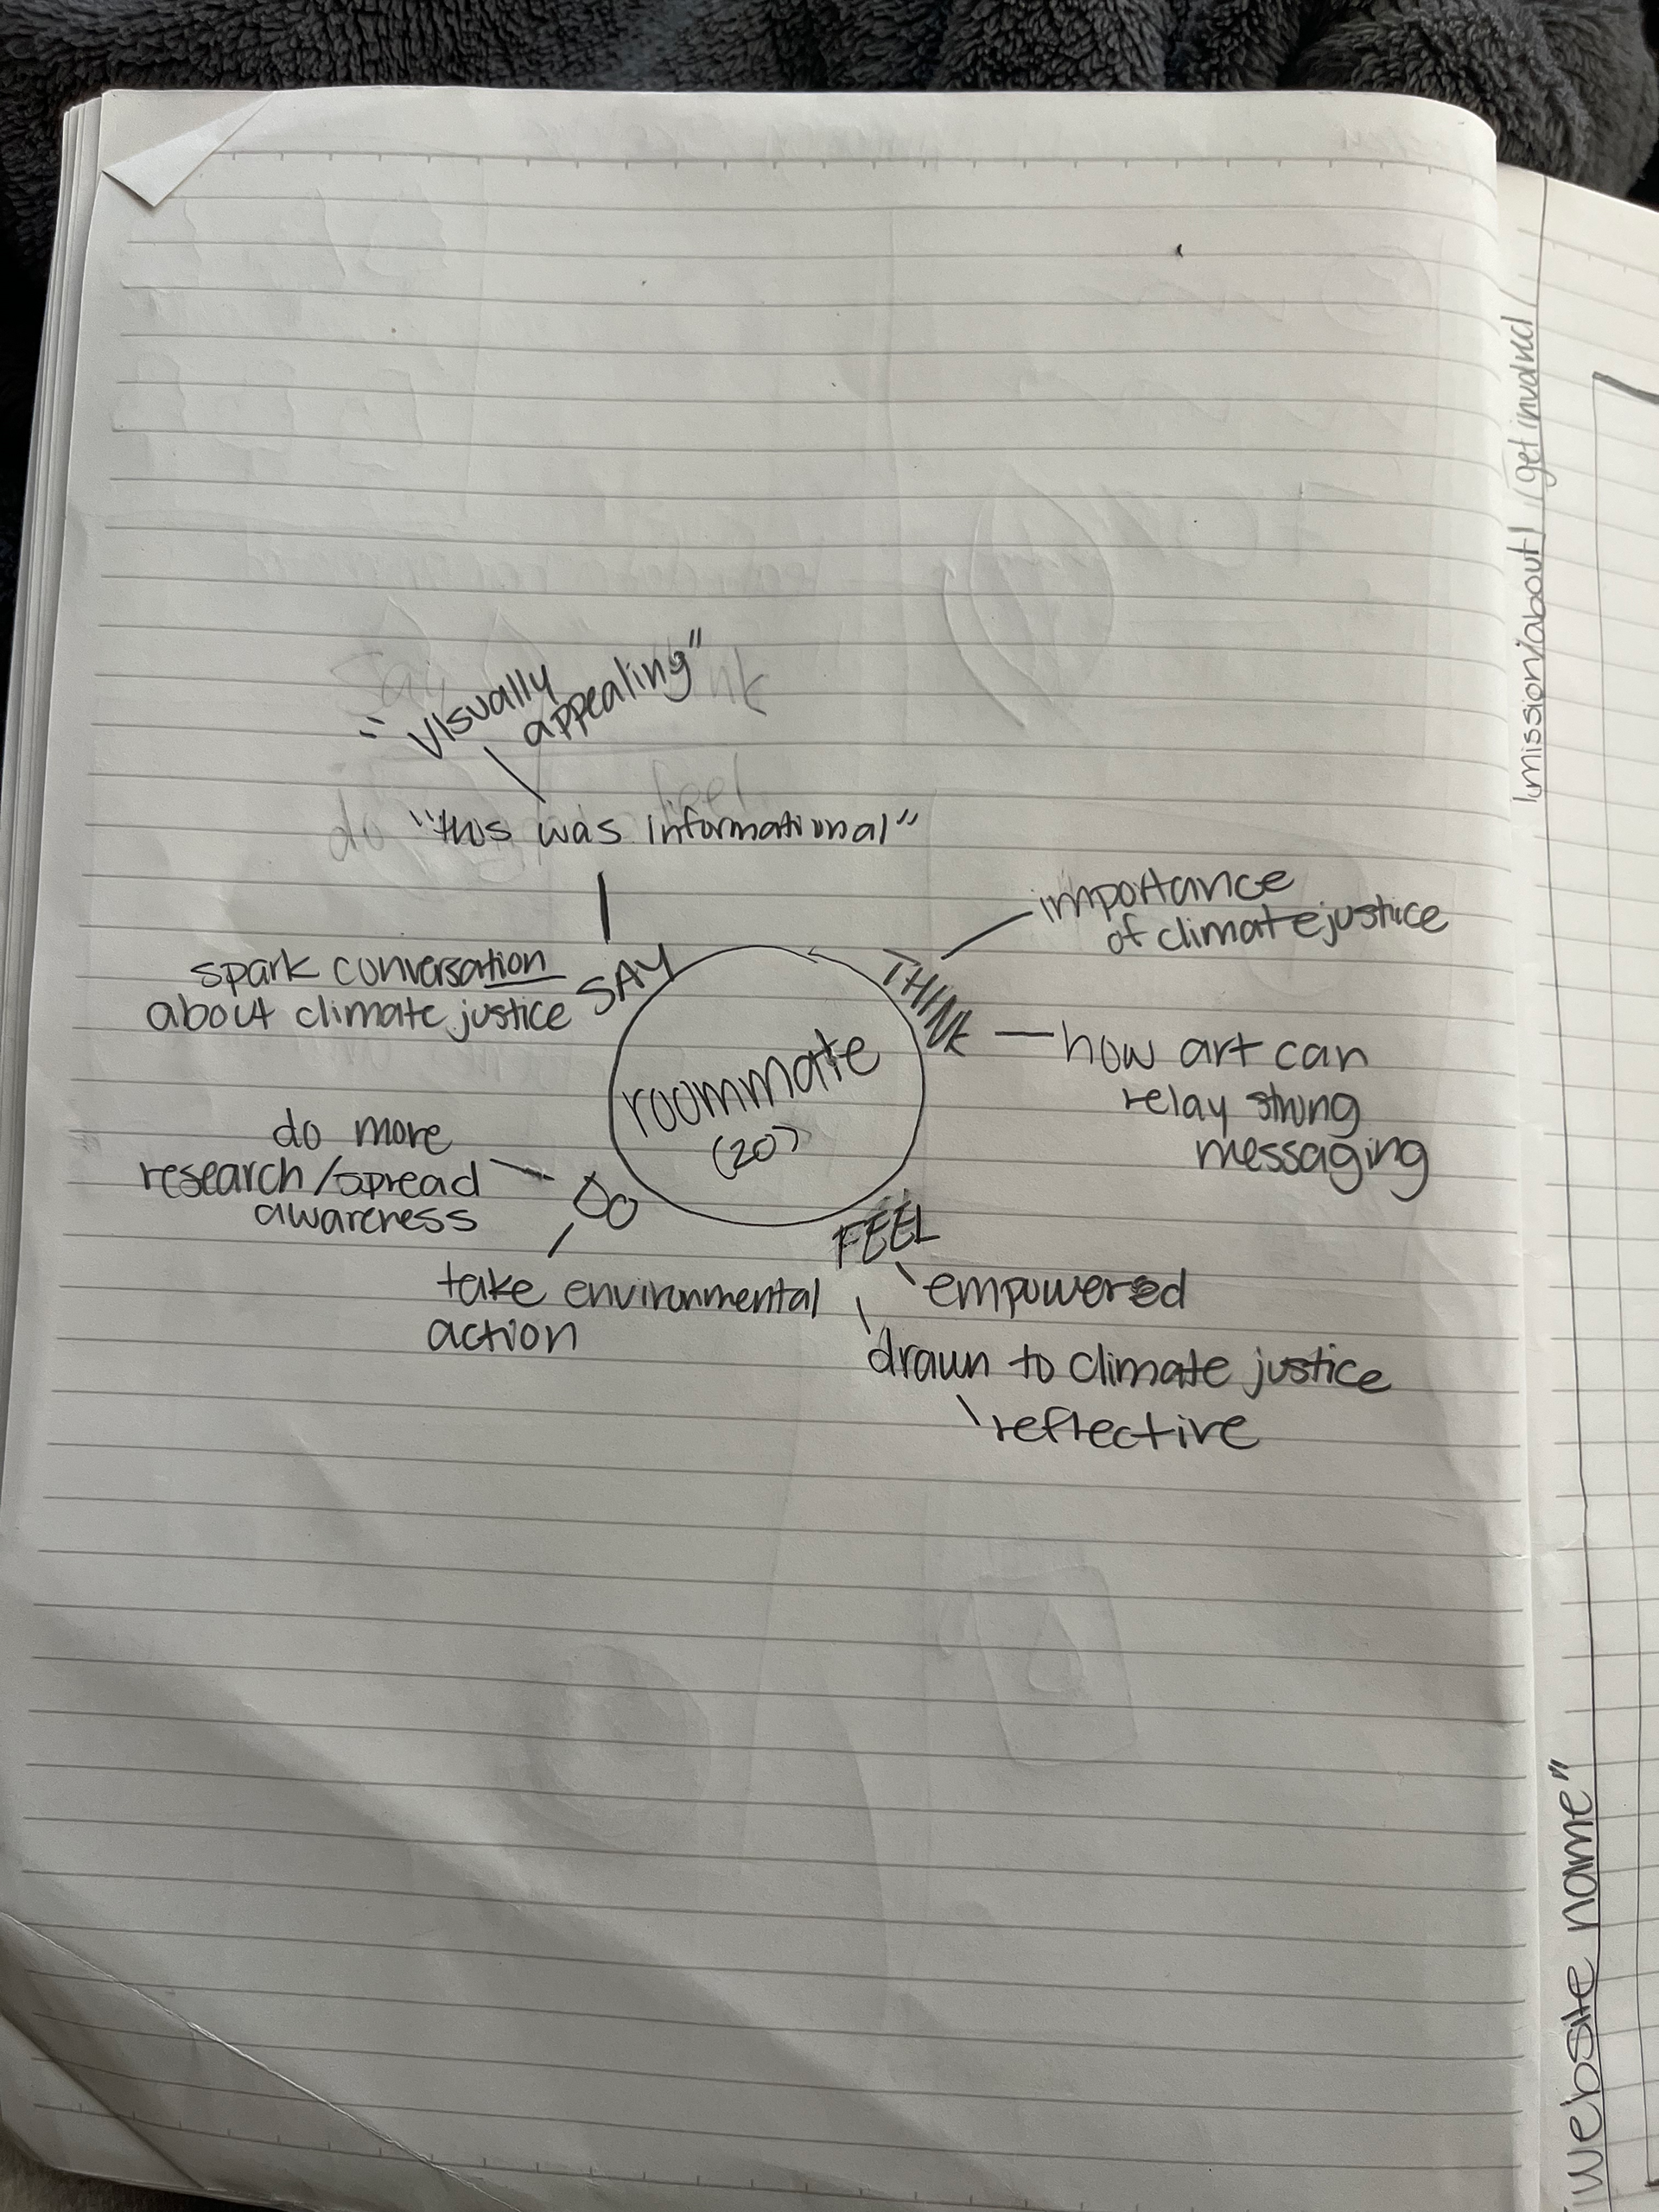 "visually
appealing"
"this was informational"
SAY
spark conversation
about climate justice
THINK
importance
of climate justice
how art can
relay strong
messaging
roommate
(20)
DO
do more
research/spread
awareness
take environmental
action
FEEL
empowered
drawn to climate justice
reflective
mission/about
get involved
"website name"